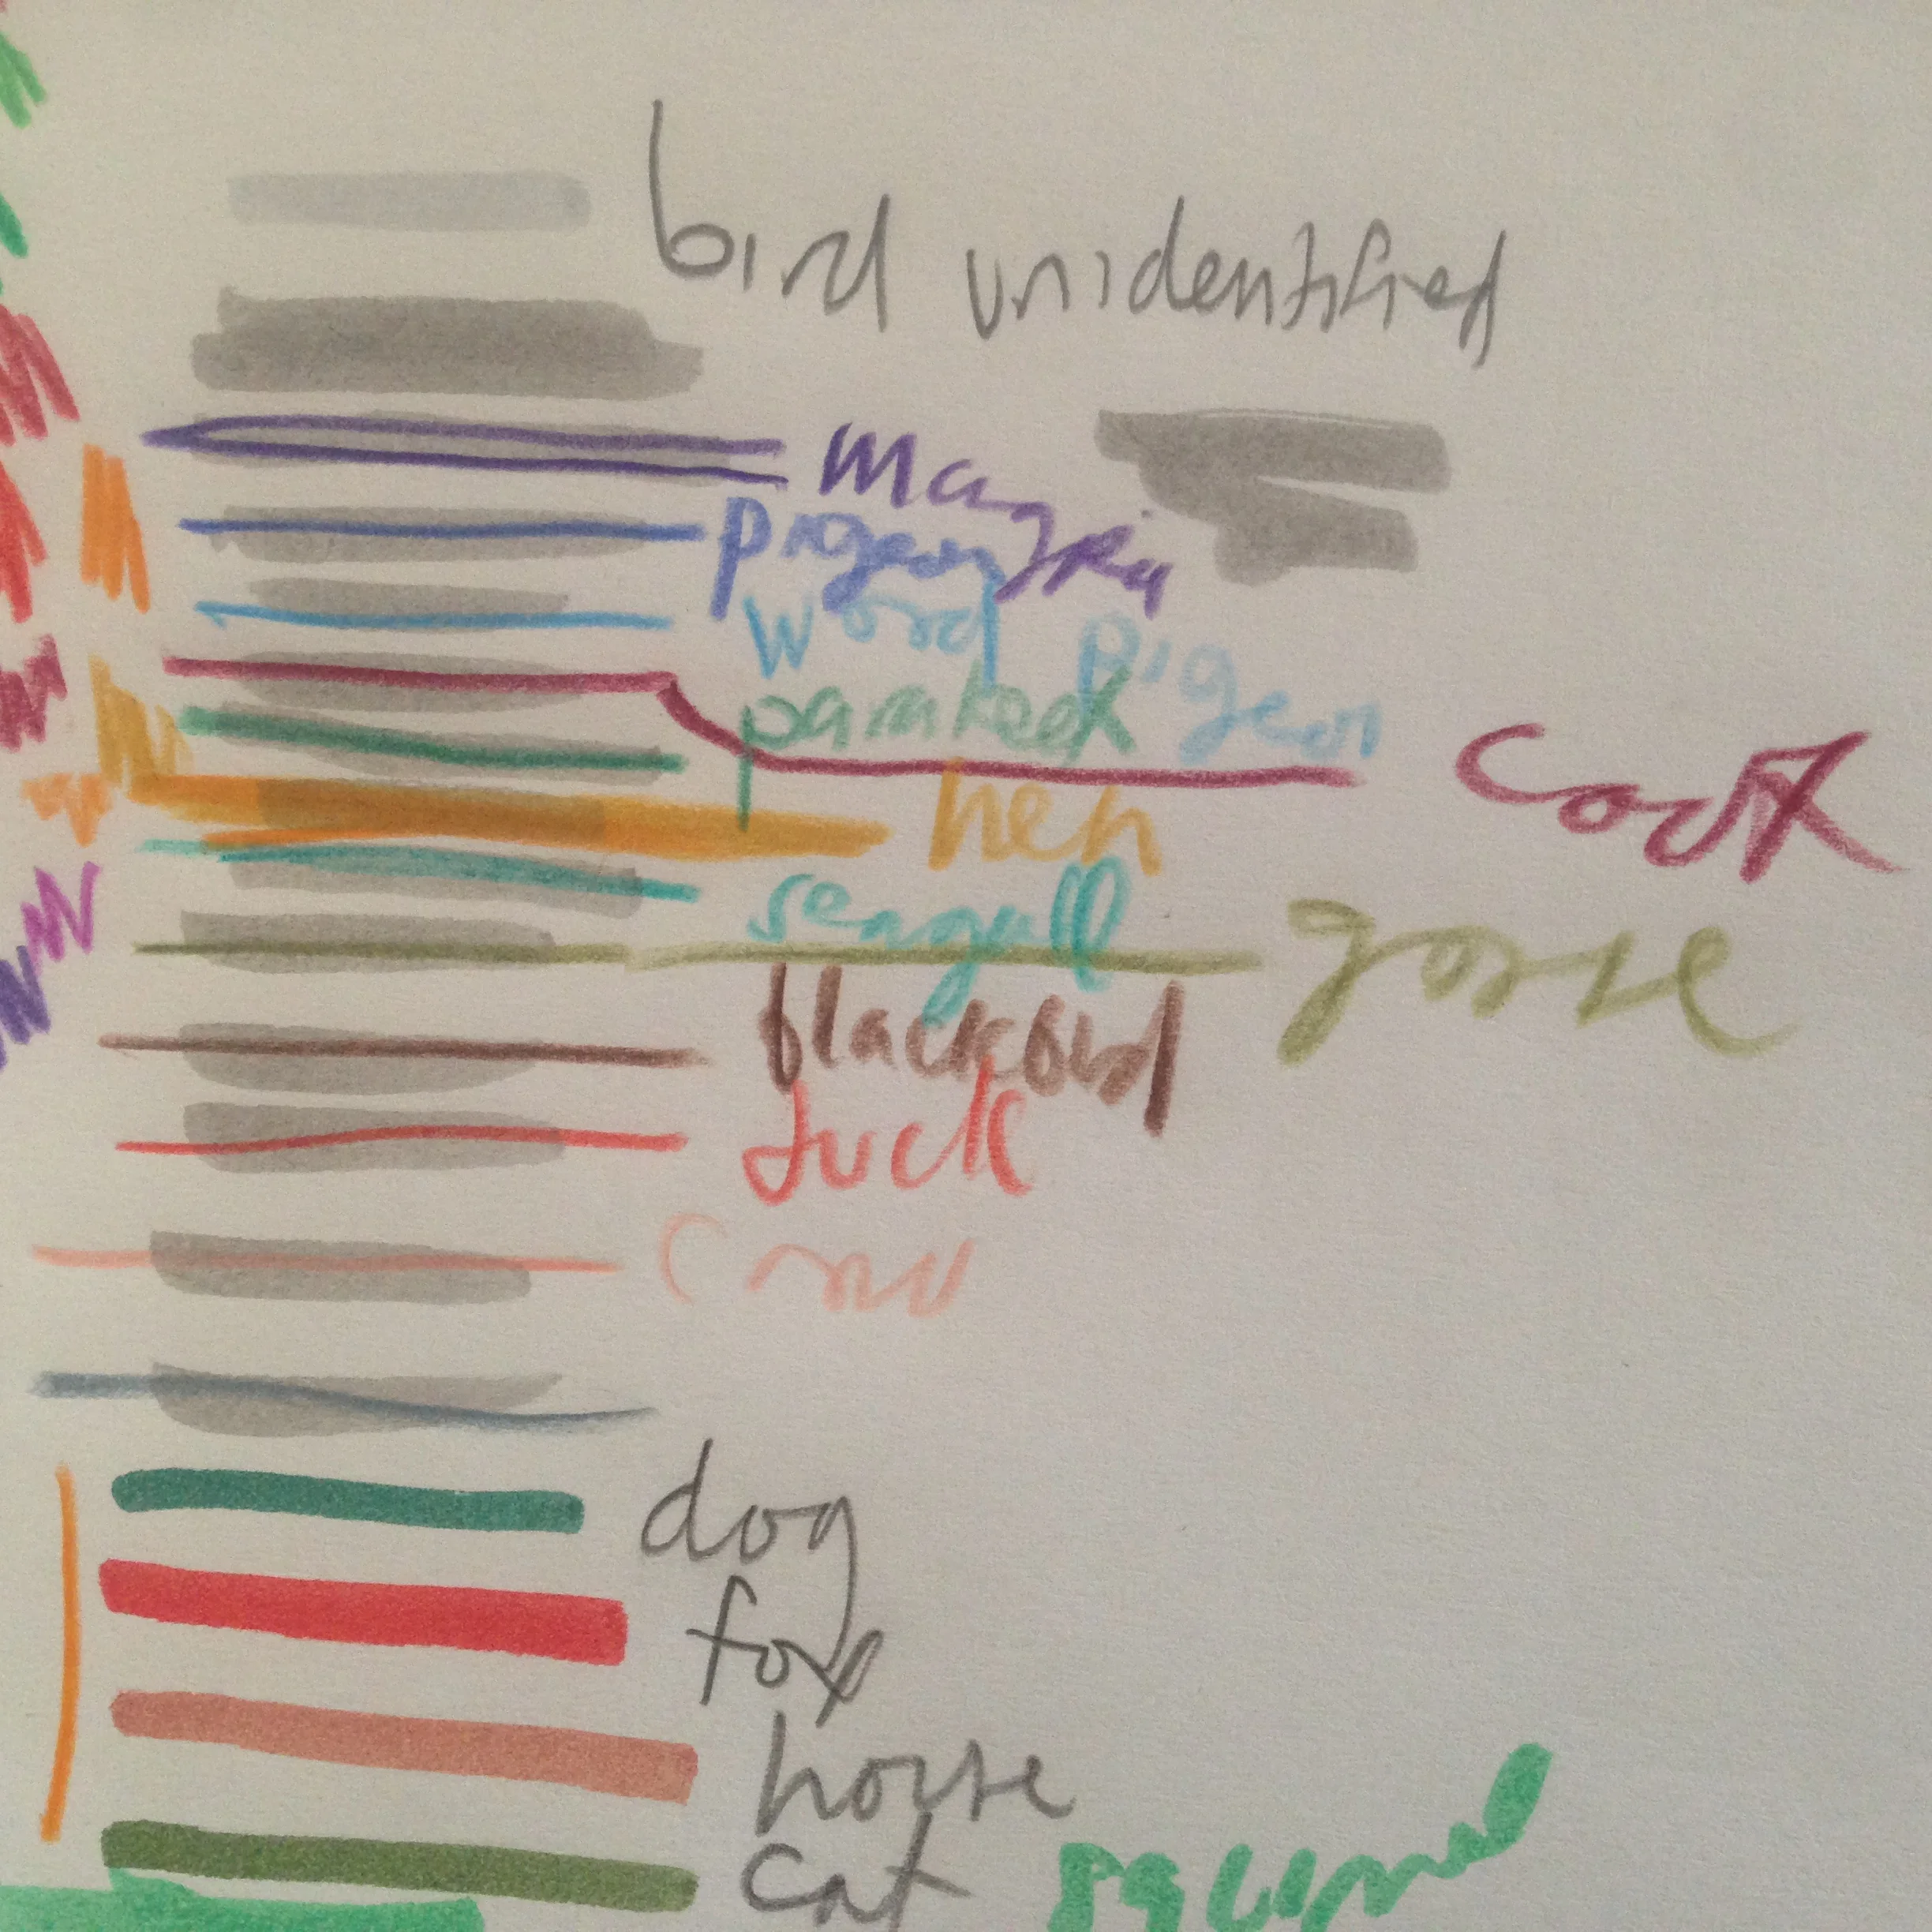 bird unidentified
magpie
pigeon
wood pigeon
parakeet
cock
hen
seagull
goose
blackbird
duck
crow
dog
fox
horse
cat
squirrel